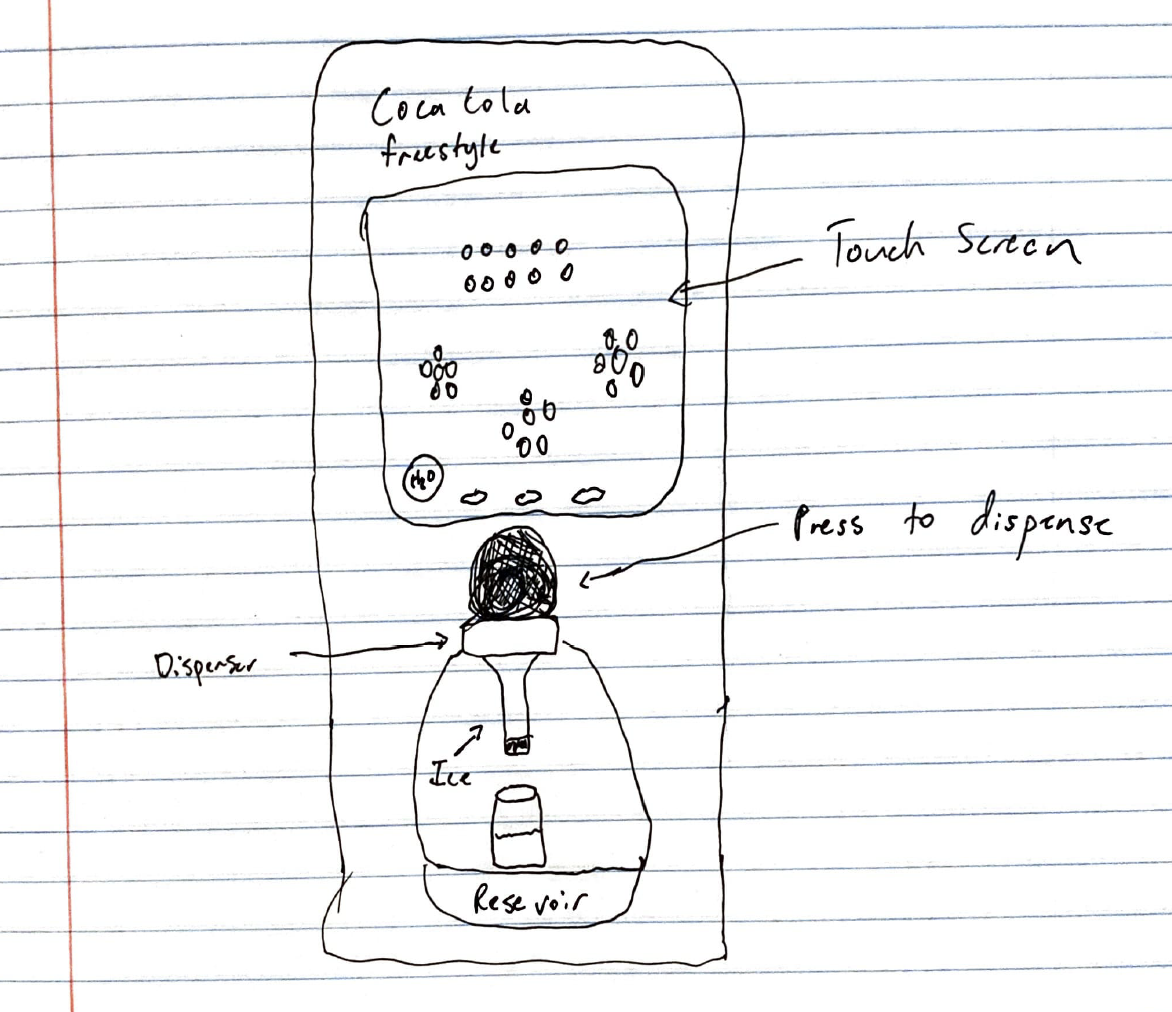 Coca Cola
freestyle
Touch Screen
H2O
Press to dispense
Dispenser
Ice
Reservoir